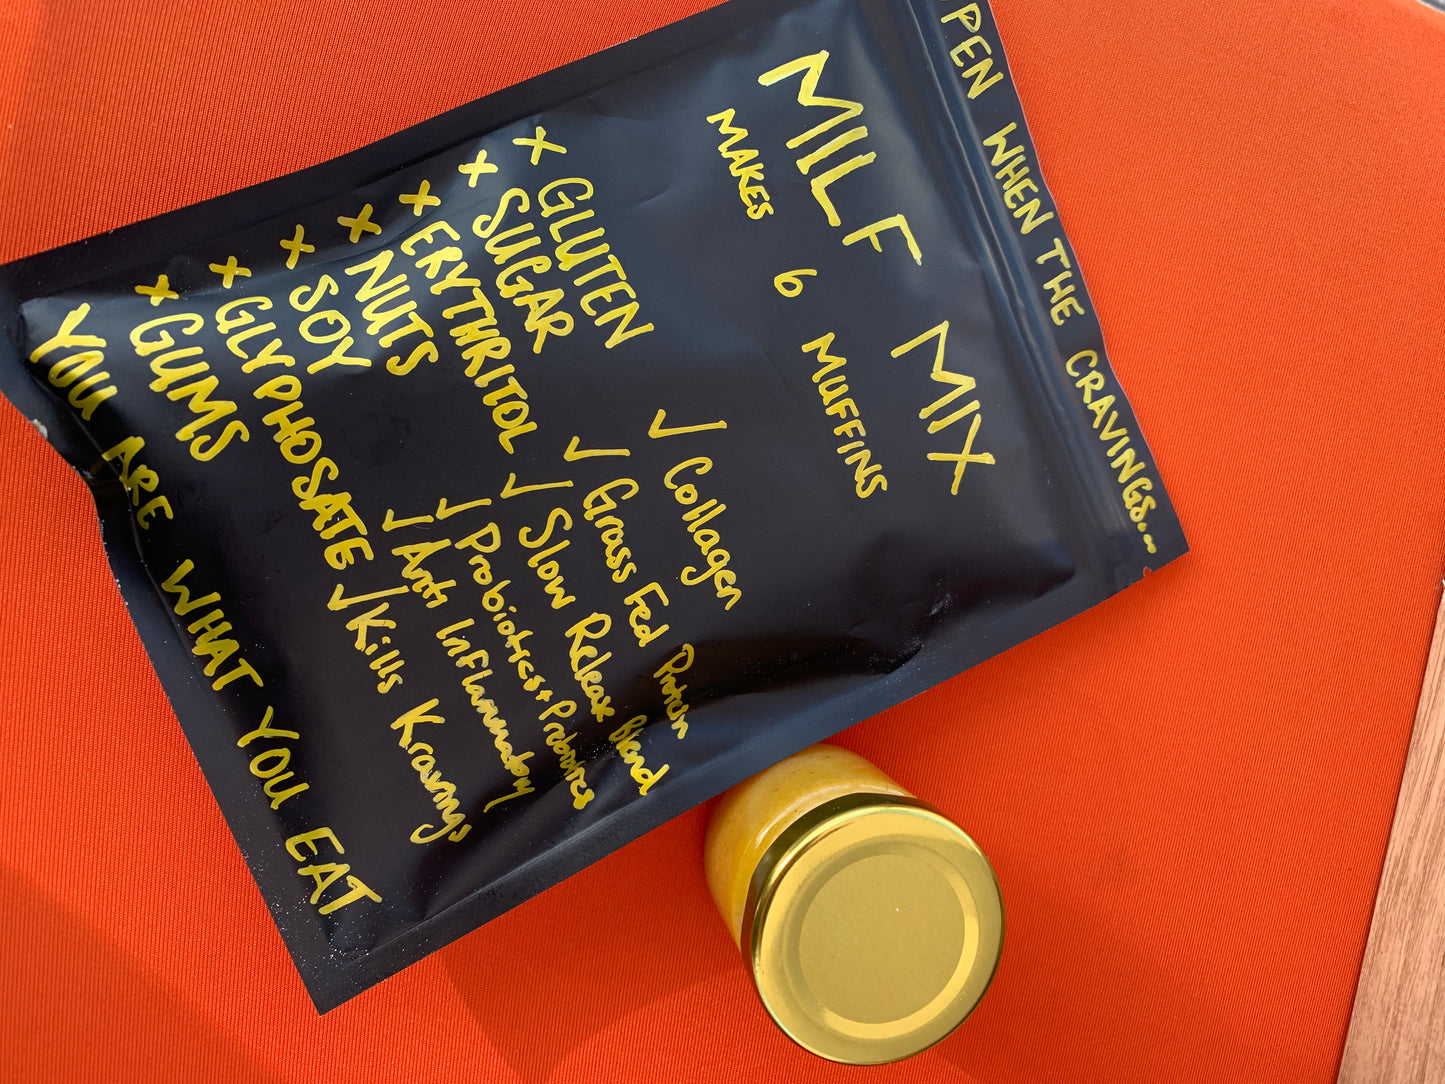 OPEN WHEN THE CRAVINGS...
MILF MIX
MAKES 6 MUFFINS
x GLUTEN
x SUGAR
x ERYTHRITOL
x NUTS
x SOY
x GLYPHOSATE
x GUMS
✓ Collagen
✓ Grass Fed Protein
✓ Slow Release Blend
✓ Probiotics + Prebiotics
✓ Anti Inflammatory
✓ Kills Kravings
YOU ARE WHAT YOU EAT